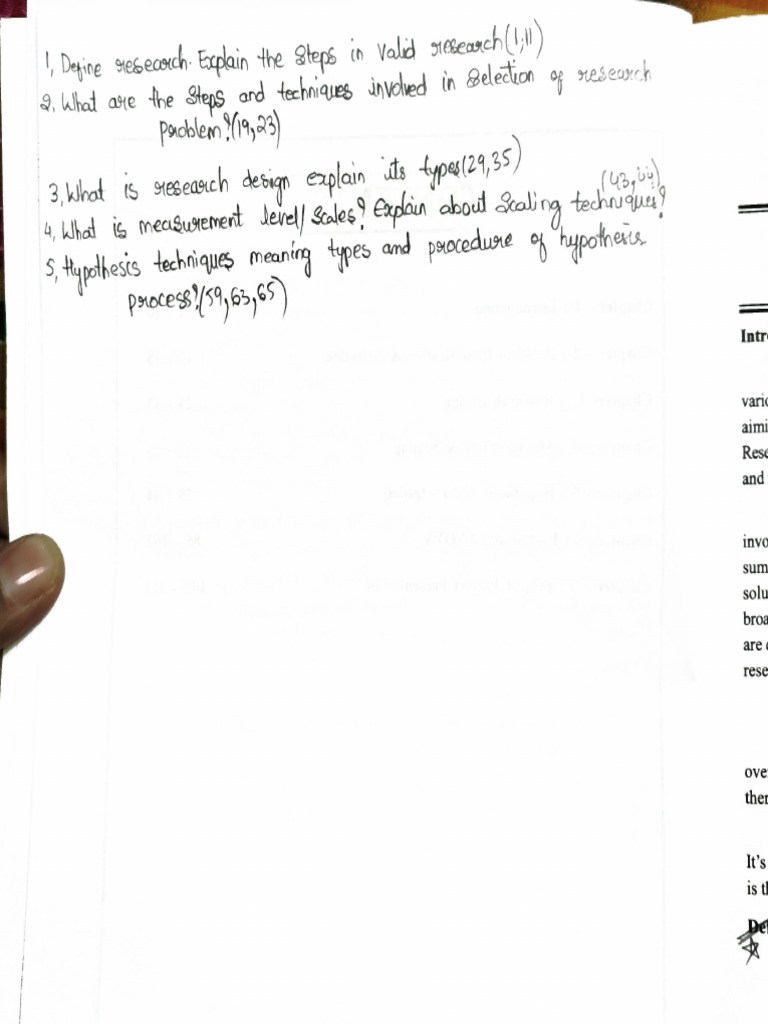 1, Define research. Explain the Steps in Valid research(1,11)
2, What are the Steps and techniques involved in Selection of research
problem?(19,23)
3, What is research design explain its types(29,35)
4, What is measurement level/ Scales? Explain about Scaling techniques?
(43,
5, Hypothesis techniques meaning types and procedure of hypothesis
process?(59,63,65)
Intr
vario
aimi
Rese
and
invo
sum
solu
broa
are
rese
over
ther
It's
is th
De